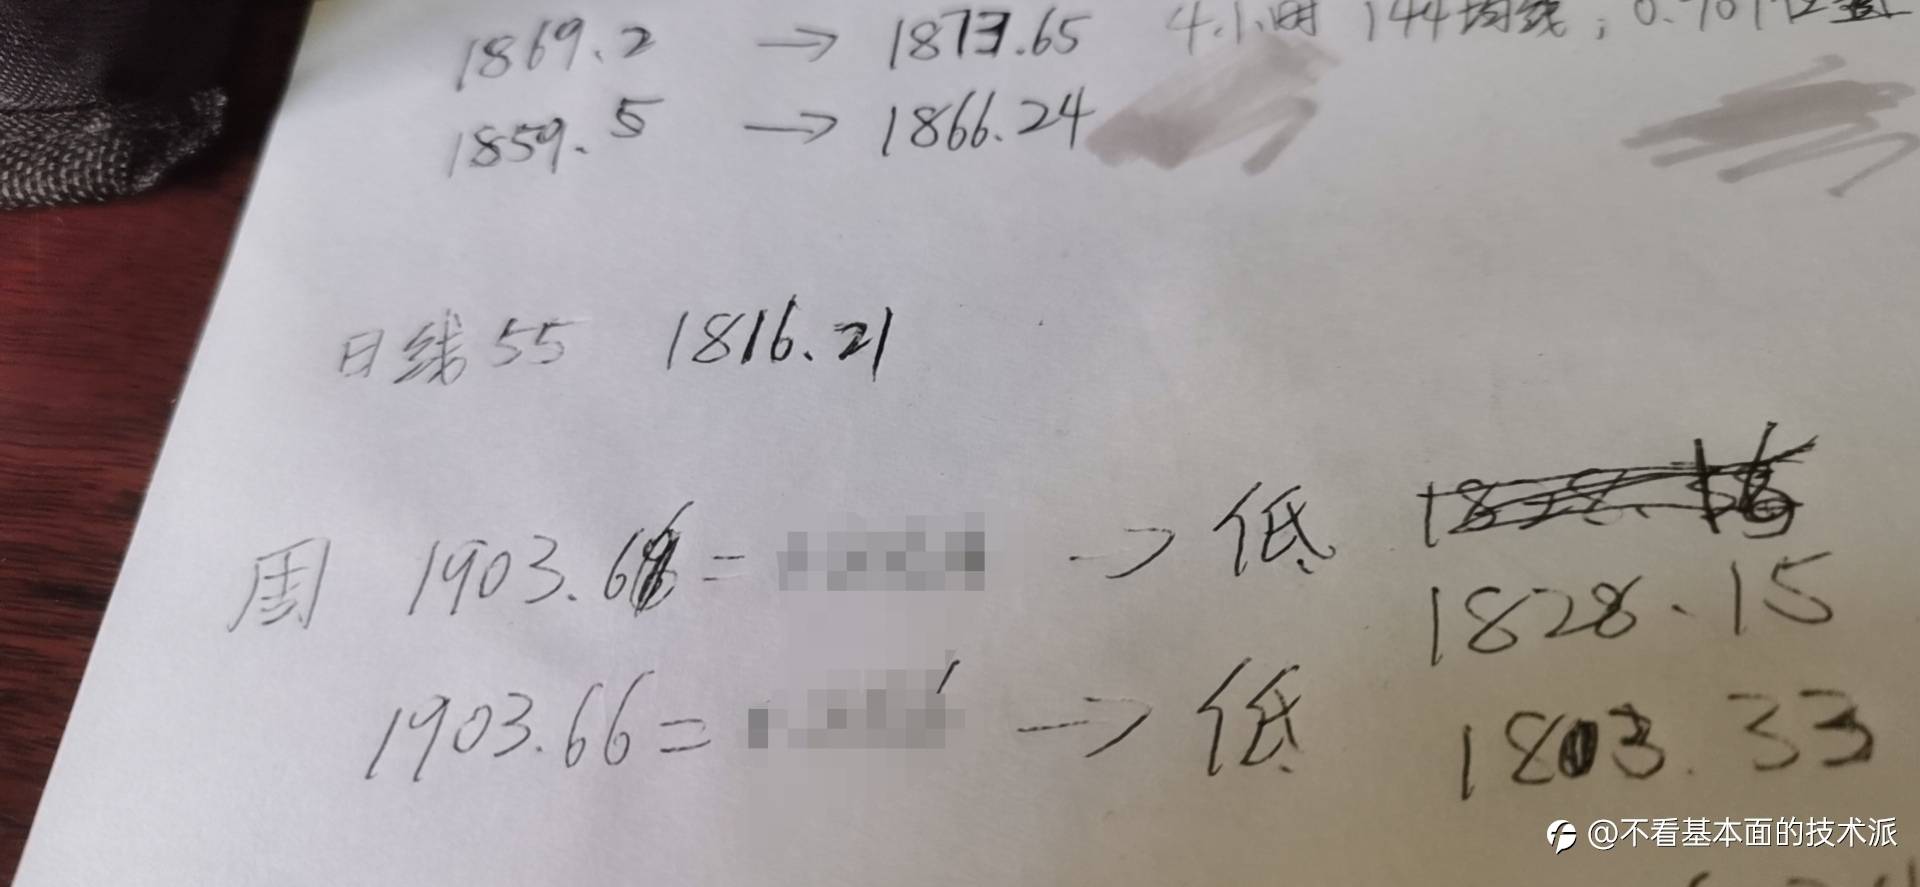 1869.2 → 1873.65 4小时 144均线;
1859.5 → 1866.24
日线55 1816.21
周 1903.66 = → 低
1828.15
1903.66 = → 低 1803.33
@不看基本面的技术派